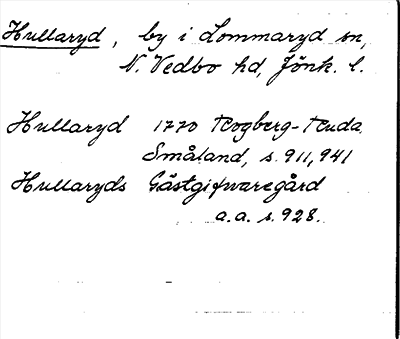 Hullaryd, by i Lommaryd sn,
N. Vedbo hd, Jönk. l.
Hullaryd 1770 Rogberg-Ruda
Småland, s. 911, 941
Hullaryds Gästgifvaregård
a.a. s. 928.